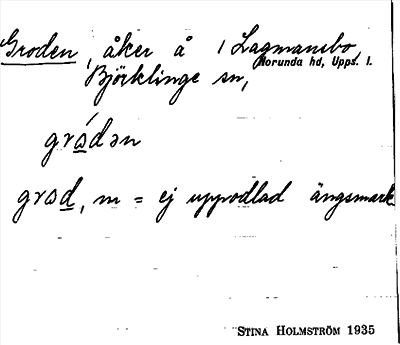 Groden, åker å 1 Lagmansbo,
Norunda hd, Upps. l.
Björklinge sn,
gródən
grod, m = ej uppodlad ängsmark
STINA HOLMSTRÖM 1935